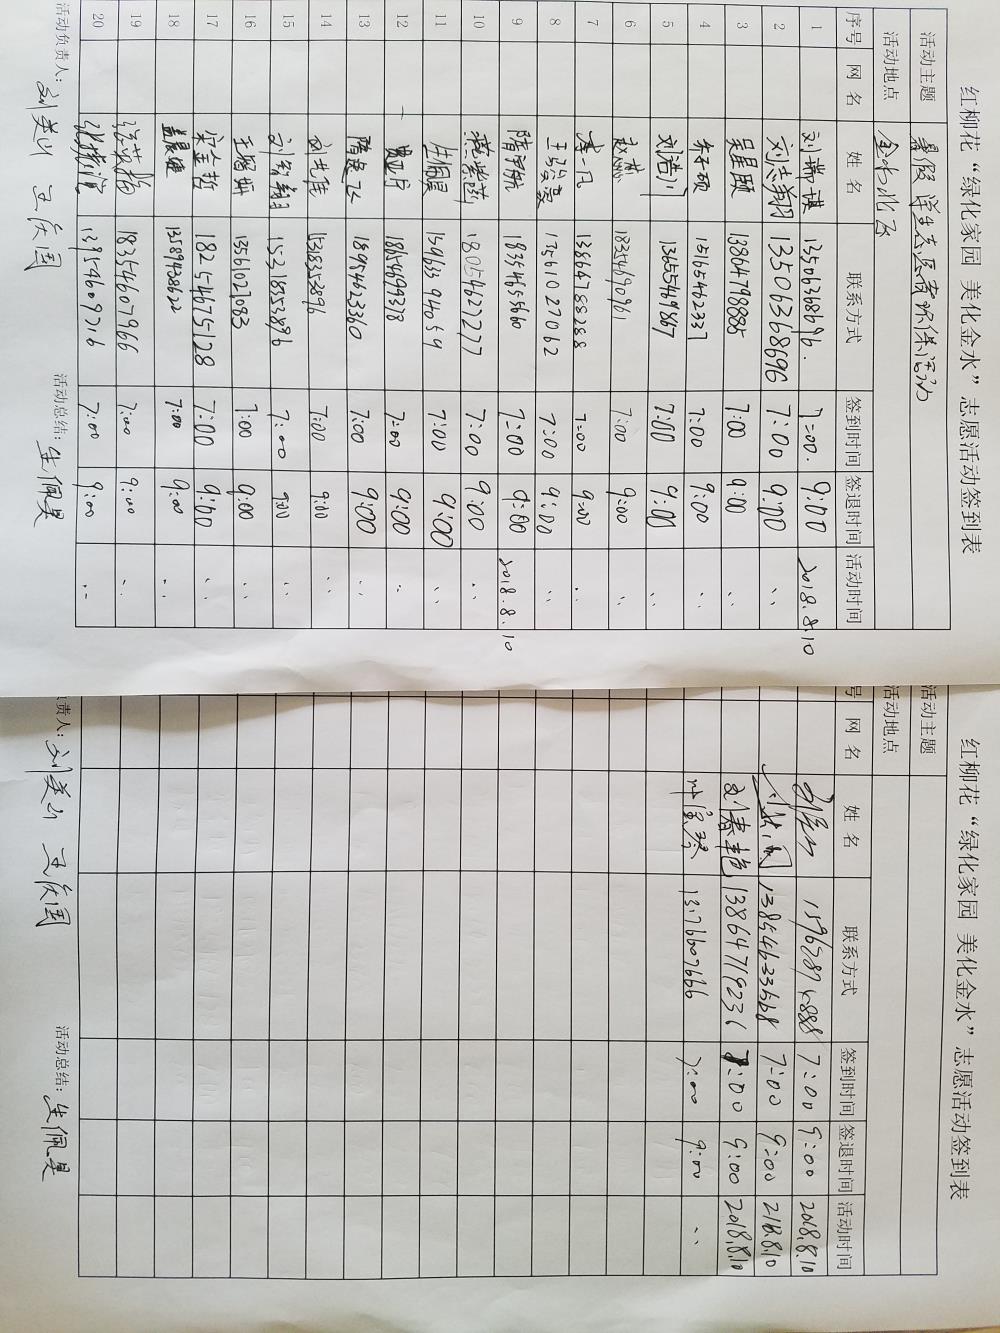 红柳花“绿化家园 美化金水”志愿活动签到表
活动主题 暑假学生志愿者环保活动
活动地点 金水北区
序号 网名 姓名 联系方式 签到时间 签退时间 活动时间
1 刘瑞祺 13506368696. 7:00. 9:00 2018.8.10
2 刘志翔 13506368696 7:00 9:00 〃
3 吴星颐 13864798885 7:00 9:00 〃
4 朱子硕 15165462337 7:00 9:00 〃
5 刘浩川 13655469867 7:00 9:00 〃
6 18354690961 7:00 9:00 〃
7 李一凡 13866478828 7:00 9:00 〃
8 13561027062 7:00 9:00 〃
9 隋宇航 18354656660 7:00 9:00 2018.8.10
10 18054627277 7:00 9:00 〃
11 生佩昊 7:00 9:00 〃
12 18654699378 7:00 9:00 〃
13 18954623360 7:00 9:00 〃
14 15318353896 7:00 9:00 〃
15 刘智翔 15318353896 7:00 9:00 〃
16 13561027083 7:00 9:00 〃
17 宋金哲 18254675128 7:00 9:00 〃
18 13589428622 7:00 9:00 〃
19 18354607966 7:00 9:00 〃
20 13954609716 7:00 9:00 〃
活动负责人: 刘英山 王庆国 活动总结: 生佩昊
红柳花“绿化家园 美化金水”志愿活动签到表
活动主题
活动地点
号 网名 姓名 联系方式 签到时间 签退时间 活动时间
7:00 9:00 2018.8.10
13854633668 7:00 9:00 218.8.10
刘春艳 13864719236 7:00 9:00 2018.8.10
13176607666 7:00 9:00 〃
责人: 刘英山 王庆国 活动总结: 生佩昊